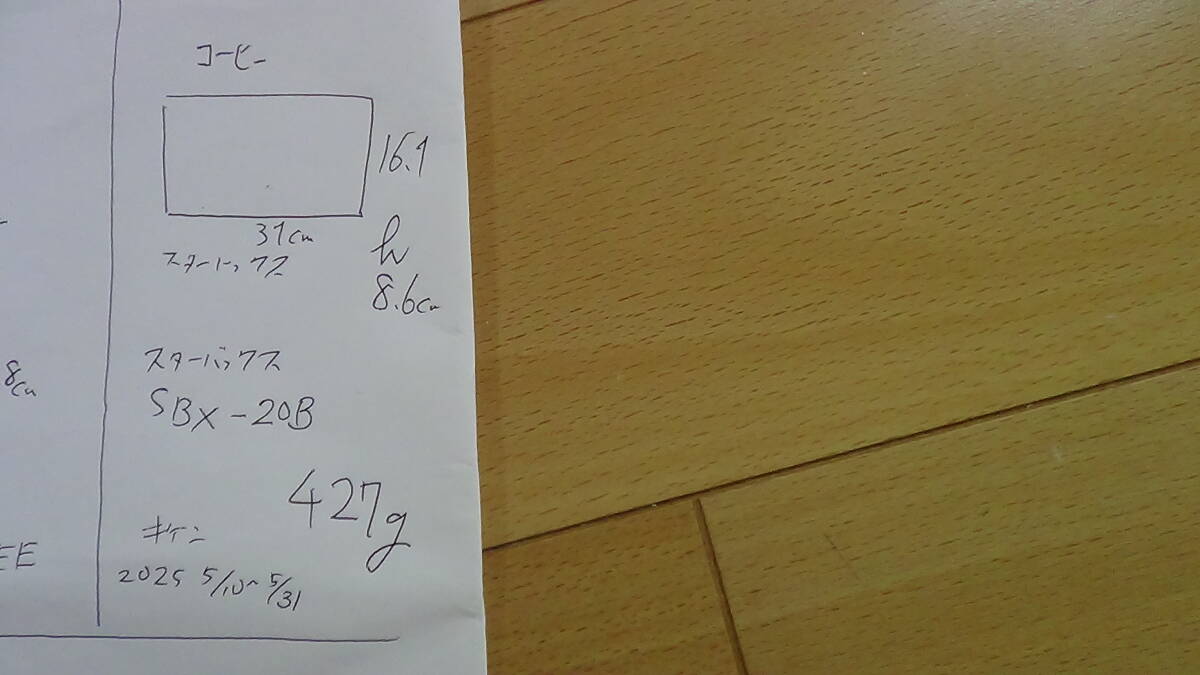 コーヒー
16.1
31cm
スターバックス
h
8.6cm
スターバックス
SBX-20B
427g
キゲン
2025 5/10~5/31
8cm
EE